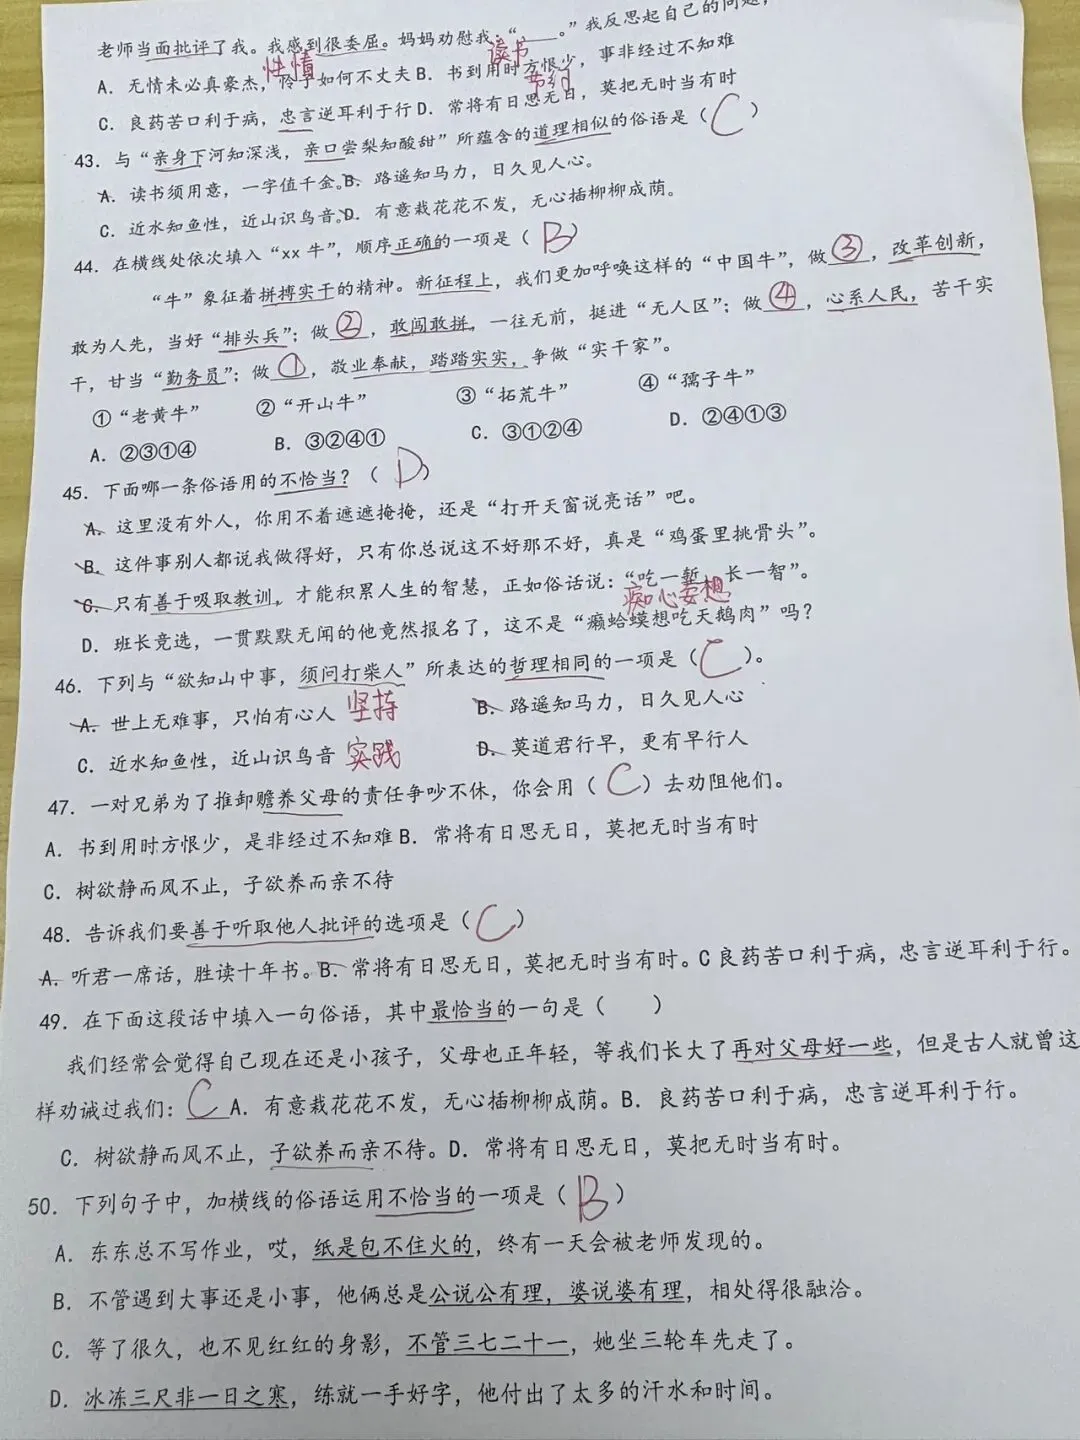 老师当面批评了我。我感到很委屈。妈妈劝慰我:“____。”我反思起自己的问题,
性情 读书 节约
A. 无情未必真豪杰, 怜子如何不丈夫 B. 书到用时方恨少, 事非经过不知难
C. 良药苦口利于病, 忠言逆耳利于行 D. 常将有日思无日, 莫把无时当有时
43. 与“亲身下河知深浅, 亲口尝梨知酸甜”所蕴含的道理相似的俗语是( C )
A. 读书须用意, 一字值千金。B. 路遥知马力, 日久见人心。
C. 近水知鱼性, 近山识鸟音。D. 有意栽花花不发, 无心插柳柳成荫。
44. 在横线处依次填入“xx 牛”, 顺序正确的一项是( B )
“牛”象征着拼搏实干的精神。新征程上, 我们更加呼唤这样的“中国牛”, 做 ③ , 改革创新,
敢为人先, 当好“排头兵”; 做 ② , 敢闯敢拼, 一往无前, 挺进“无人区”; 做 ④ , 心系人民, 苦干实
干, 甘当“勤务员”; 做 ① , 敬业奉献, 踏踏实实, 争做“实干家”。
①“老黄牛” ②“开山牛” ③“拓荒牛” ④“孺子牛”
A. ②③①④ B. ③②④① C. ③①②④ D. ②④①③
45. 下面哪一条俗语用的不恰当?( D )
A. 这里没有外人, 你用不着遮遮掩掩, 还是“打开天窗说亮话”吧。
B. 这件事别人都说我做得好, 只有你总说这不好那不好, 真是“鸡蛋里挑骨头”。
C. 只有善于吸取教训, 才能积累人生的智慧, 正如俗话说:“吃一堑, 长一智”。
痴心妄想
D. 班长竞选, 一贯默默无闻的他竟然报名了, 这不是“癞蛤蟆想吃天鹅肉”吗?
46. 下列与“欲知山中事, 须问打柴人”所表达的哲理相同的一项是( C )。
A. 世上无难事, 只怕有心人 坚持 B. 路遥知马力, 日久见人心
C. 近水知鱼性, 近山识鸟音 实践 D. 莫道君行早, 更有早行人
47. 一对兄弟为了推卸赡养父母的责任争吵不休, 你会用( C )去劝阻他们。
A. 书到用时方恨少, 是非经过不知难 B. 常将有日思无日, 莫把无时当有时
C. 树欲静而风不止, 子欲养而亲不待
48. 告诉我们要善于听取他人批评的选项是( C )
A. 听君一席话, 胜读十年书。B. 常将有日思无日, 莫把无时当有时。C 良药苦口利于病, 忠言逆耳利于行。
49. 在下面这段话中填入一句俗语, 其中最恰当的一句是( )
我们经常会觉得自己现在还是小孩子, 父母也正年轻, 等我们长大了再对父母好一些, 但是古人就曾这
样劝诫过我们: C A. 有意栽花花不发, 无心插柳柳成荫。B. 良药苦口利于病, 忠言逆耳利于行。
C. 树欲静而风不止, 子欲养而亲不待。D. 常将有日思无日, 莫把无时当有时。
50. 下列句子中, 加横线的俗语运用不恰当的一项是( B )
A. 东东总不写作业, 哎, 纸是包不住火的, 终有一天会被老师发现的。
B. 不管遇到大事还是小事, 他俩总是公说公有理, 婆说婆有理, 相处得很融洽。
C. 等了很久, 也不见红红的身影, 不管三七二十一, 她坐三轮车先走了。
D. 冰冻三尺非一日之寒, 练就一手好字, 他付出了太多的汗水和时间。